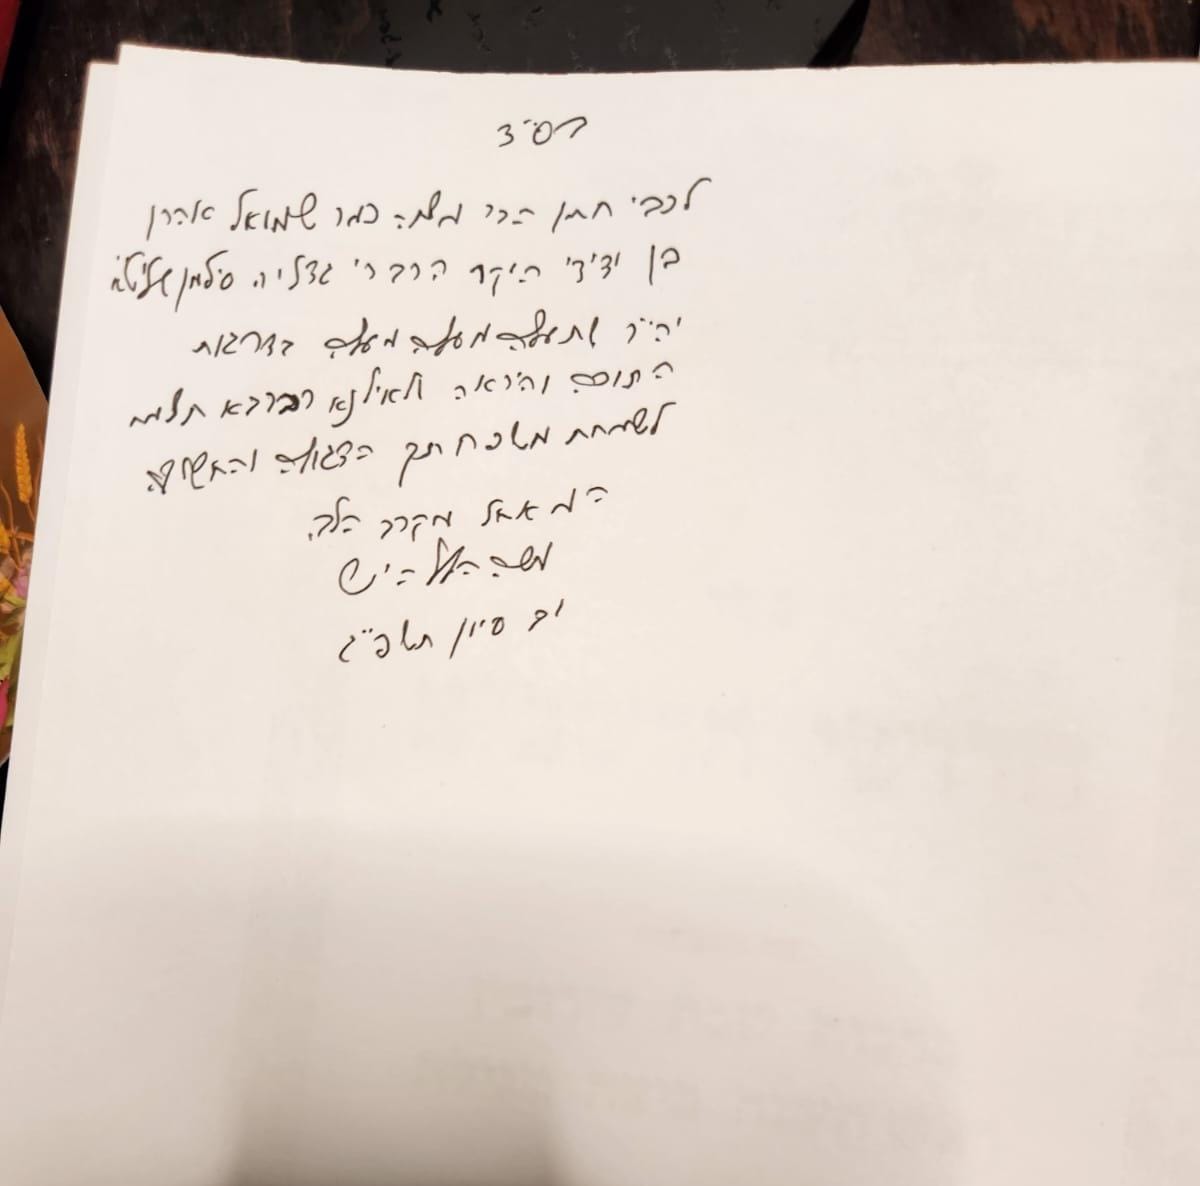 בס"ד
לכבי חתן הבר מצוה כמר שמואל אהרן
בן ידידי היקר הרב ר' גדליה סלמן שליט"א
יה"ר שתעלה מעלה מעלה בדרגות
התורה והיראה לאילנא רברבא תצמח
לשמחת משפחתך הדגולה והחשובה
המאחל מקרב הלב
משה הלל הירש
יב סיון תשפ"ג